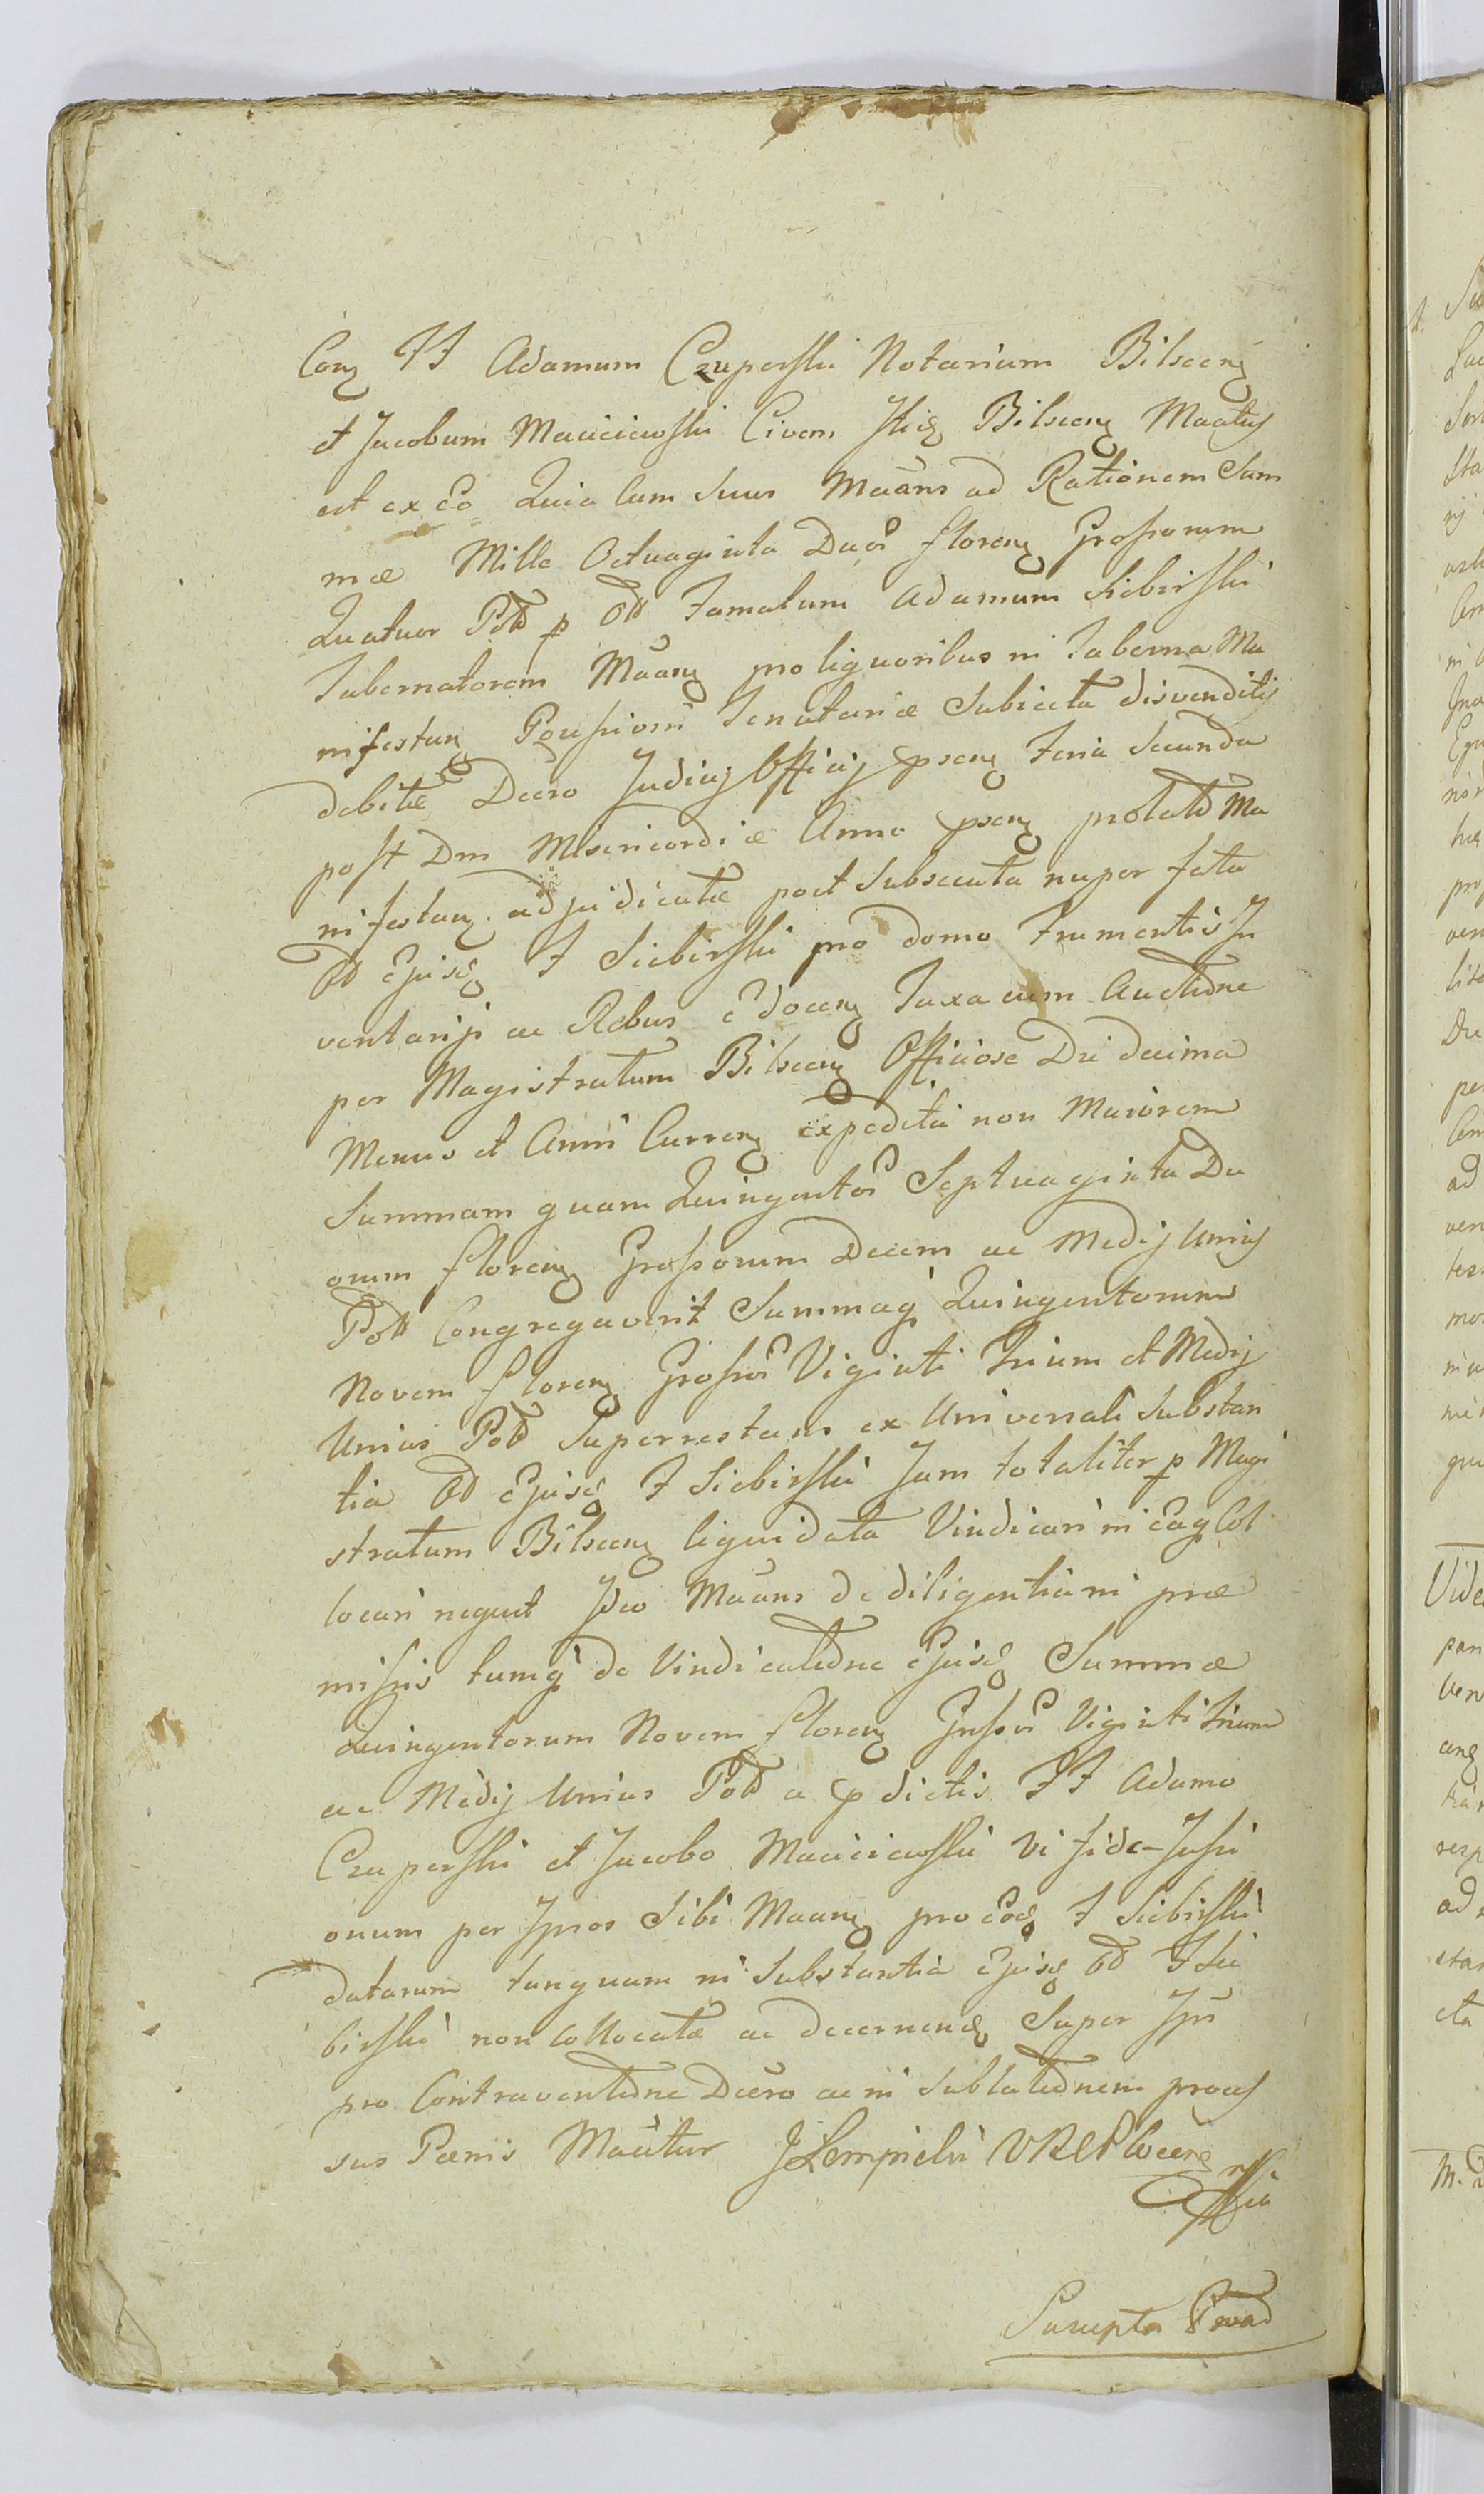 Conz FF Adamum Czuperski Notarium Bilscenz
et Jacobum Maciciewski Civem Hicz Bilscenz Maatus
est ex eo Quia Cum Suus Maans ad Rationem Sum
mæ Mille Octuaginta Duor florenz Grossorum
Quatuor Poll p Olt Famatum Adamum Siebirski
Tabernatorem Maanz pro liquoribus in Taberna Ma
nifestanz Possioni Tenutariæ Subiecta disvenditis
debitæ Decro Judicij Officij psenz Feria Secunda
post Dm Misericordiæ Anno psenz prolato Ma
nifestanz adjudicatæ post Subsecuta nuper fata
Od Ejusd F Siebirski pro domo Frumentis In
ventarijs ac Rebus edocenz Taxa cum Auctione
per Magistratum Bilscenz Officiose Die decima
Mensis et Anni Currenz expedita non Maiorem
Summam quam Quingentor Septuaginta Du
orum florenz Grossorum Decem ac Medij Unius
Poll Congregaverit Summaq Quingentorum
Novem florenz Grossor Viginti Trium et Medij
Unius Poll Superrestans ex Universali Substan
tia Od Ejusd F Siebirski Jam totaliter p Magi
stratum Bilscenz liquidata Vindicari in Eaq Col
locari nequit Ideo Maans de diligentia in præ
missis tumq de Vindicatione Ejusd Summæ
Quingentorum Novem florenz Grossor Viginti Trium
ac Medij Unius Poll a pdictis FF Adamo
Czuperski et Jacobo Maciciewski Vi fide-Jussi
onum per Ipsos Sibi Maanz pro Eod F Siebirski
datarum tanquam in Substantia Ejusd Od F Sie
birski non Collocatæ ac decernend Super Ipsis
pro Contraventione Decro ac in Sublationem proces
sus Pænis Maatur JLempicki
Suscepta